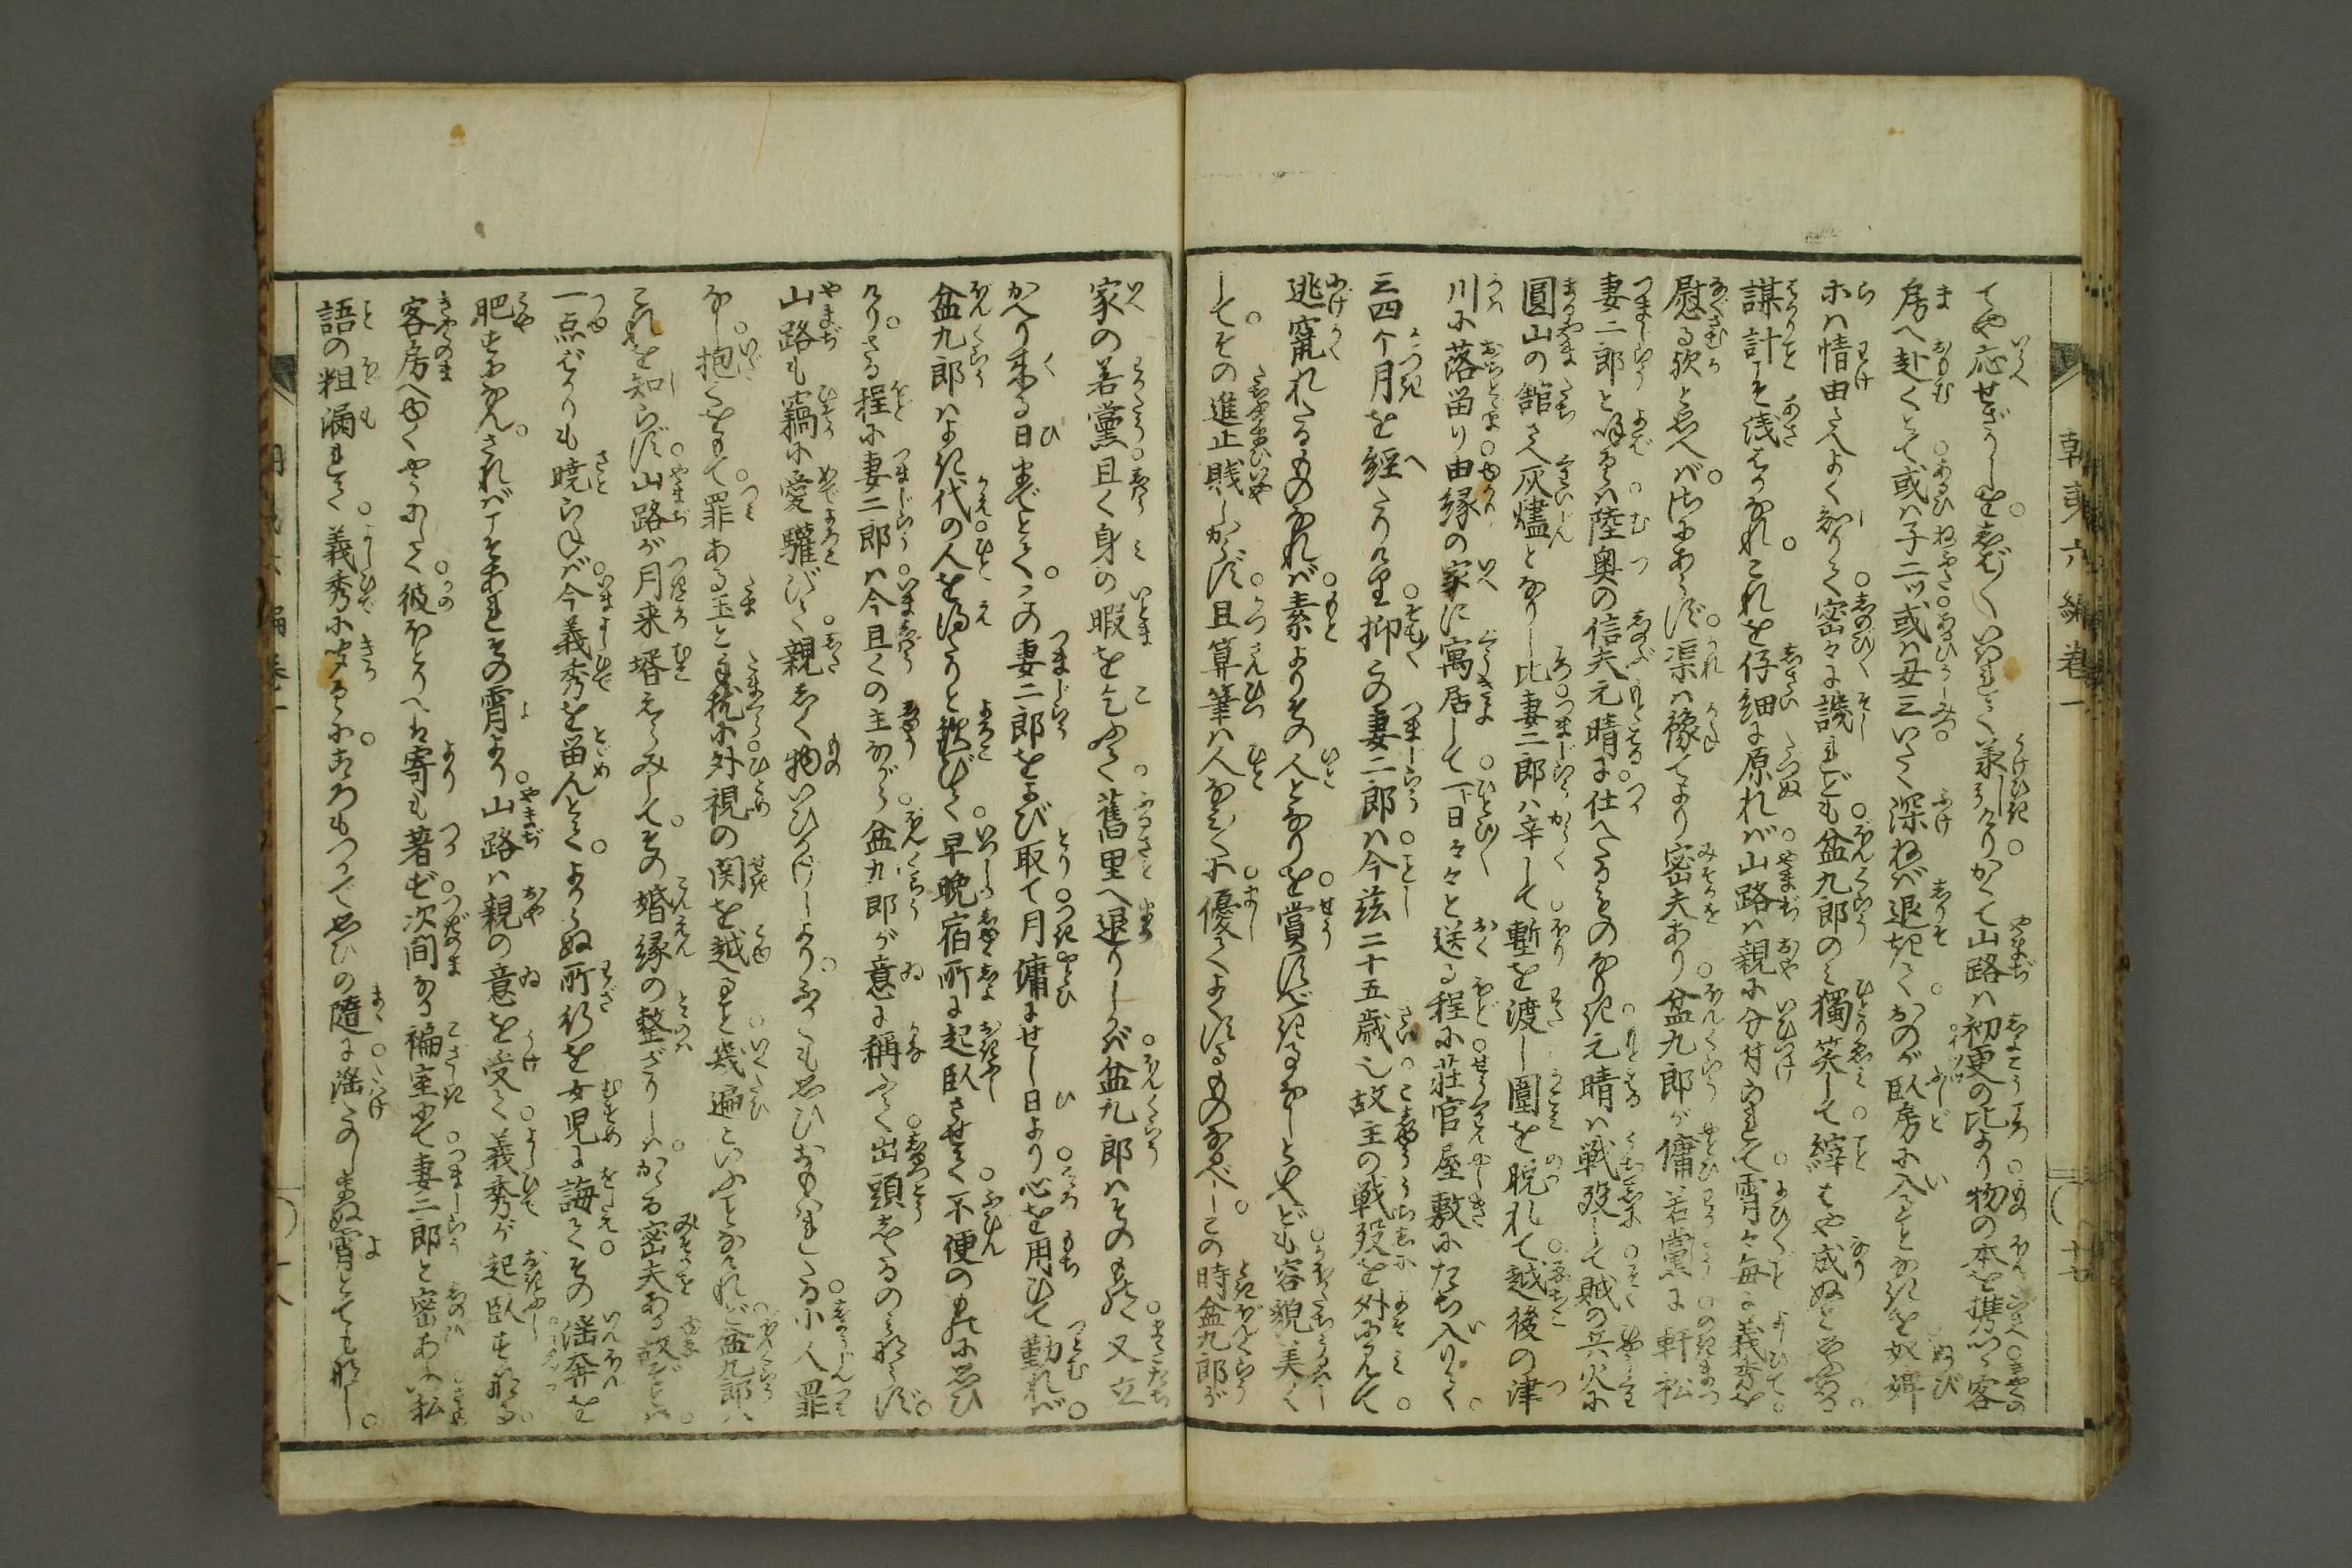 てや応せざりしを。しばしいひて承引けりかくて山路ハ初更の比より物の本を携いで客
房へ赴くとて或ハ子二ッ或ハ丑三いたく深ねバ退きておのが臥房に入ることなきを奴婢
ホハ情由さへよく知りて密々に譏れども盆九郎のミ獨笑して縡はや成ぬと
謀計こそ浅はかなれ。これを仔細に原れバ山路ハ親に分付られて宵々毎に義秀を
慰る歟と思へバさにあらず渠ハ豫てより密夫あり盆九郎が傭若黨に軒松
妻二郎と呼るゝハ陸奥の信夫元晴に仕へたるものなりき元晴ハ戦歿して賊の兵火に
圓山の舘さへ灰燼となりし比妻二郎ハ辛くして塹を渡し圍を脱れて越後の津
川に落留り由縁の家に寓居して一下日々々と送る程に荘官屋敷にたち入りて。
三四个月を経たりける抑この妻二郎ハ今茲二十五歳也故主の戦歿を外に見て
逃竄れたるものなれバ素よりその人となりを賞すべきよしなしといへども容貌美く
してその進止賎しからず且算筆ハ人なミに優てよくするものなるべし。この時盆九郎が
家の若黨且く身の暇を乞ふて舊里へ退りしかバ盆九郎ハそのもの又立
かへり来る日までとて。この妻二郎をよび取て月傭にせし日より心を用ひて勤れバ。
盆九郎ハよき代の人を得たりと歓びて早晩宿所に起臥させて不便のものに思ひ
けり。さる程に妻二郎ハ今且くの主ながら盆九郎が意に稱ふて出頭しるのミならず。
山路も竊に愛驩びて親しく物いひかけしより。ふかくも思ひおもハれたる小人罪
なし。抱くをもて罪ある玉と玉桙に外視の関を越ること幾遍といふことなけれど盆九郎ハ
これを知らず山路が月来壻えらみしてその婚縁の整ざりしハかゝる密夫ある故ぞとハ。
一点ばかりも暁らねバ今義秀を留んとて。よからぬ所行を女児に誨てその滛奔を
肥すなりけん。されバこそあれその宵より山路ハ親の意を受て義秀が起臥す
客房へゆくやうにして彼ほとりへハ寄も著ず次間なる褊室にて妻二郎と密あふ私
語の粗漏れて義秀に聞るゝにこゝろもつかで思ひの隨に滛たのしまぬ宵とてもなし。
朝夷六編巻一
十七